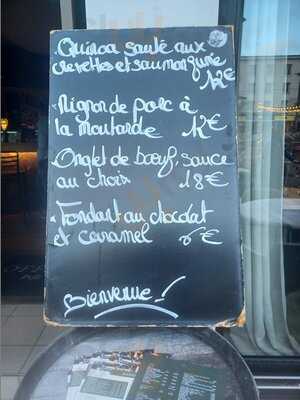 Quinoa sauté aux
crevettes et saumon fumé
12€
- Mignon de porc à
la moutarde 12€
- Onglet de bœuf, sauce
au choix 18€
- Fondant au chocolat
et caramel 6€
Bienvenue!